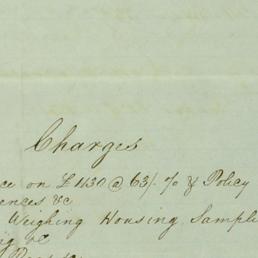 Charges
ce on £1130 @ 63/. % & Policy
ences &c
Weighing Housing Sampli
ng &c